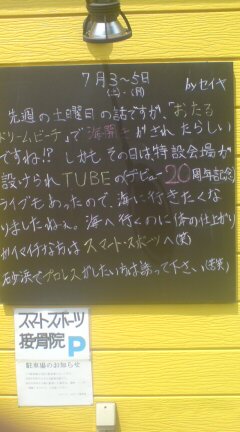 7月3~5日
(土)~(月)
byセイヤ
先週の土曜日の話ですが、「おたる
ドリームビーチ」で海開きがされたらしい
ですね!? しかもその日は特設会場が
設けられTUBEのデビュー20周年記念
ライブもあったので、海に行きたくな
りましたねぇ。海へ行くのに体の仕上がり
がイマイチな方はスマートスポーツへ(笑)
砂浜でプロレスがしたい方は誘って下さい(笑)
スマートスポーツ
接骨院 P
駐車場のお知らせ